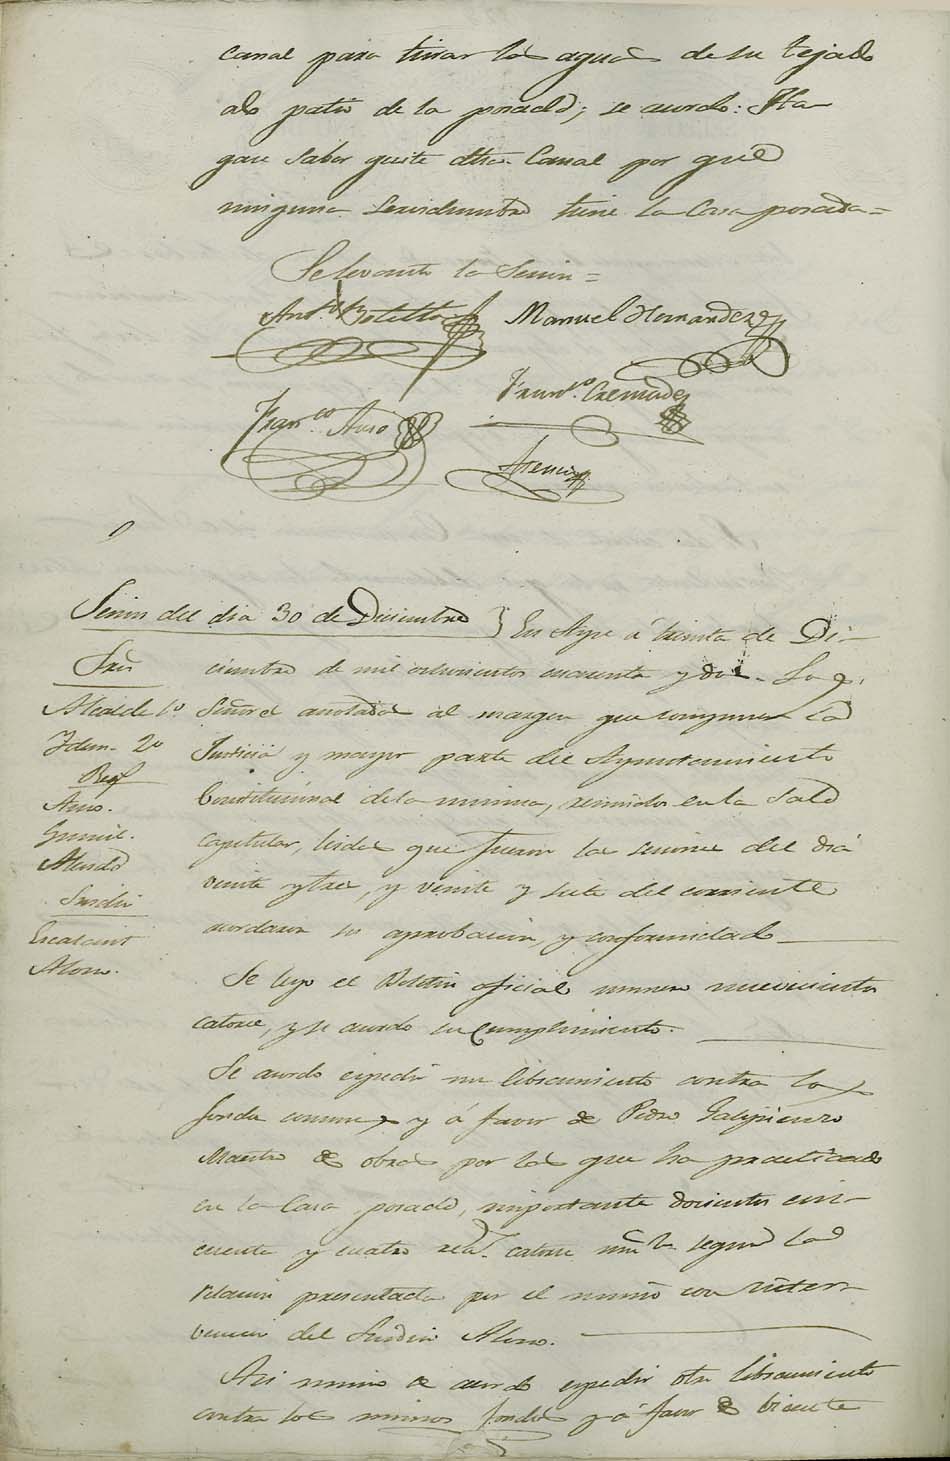 canal para tirar las aguas de su tejado
al patio de la posada; se acordo: Ha
gase saber quite dha. Canal por que
ninguna Servidumbre tiene la Casa posada=
Se levanto la Sesion=
Ant.º Botella
Manuel Hernandez
Fran.co Amo
Fran.co Cremades
Atencia
Sesion del dia 30 de Diciembre } En Aspe á treinta de Di-
Sres
ciembre de mil ochocientos cuarenta y dos. Los
Alcalde 1º
Señores anotados al margen que componen la
Idem. 2º
Justicia y mayor parte del Ayuntamiento
Reg.s
Constitucional de la misma, reunidos en la Sala
Amo.
capitular, leidas que fueron las sesiones del dia
Almodo
veinte y tres, y veinte y siete del corriente
Sindic
acordaron su aprobacion, y conformidad
Alonso.
Se leyo el Boletin oficial numero nuevecientos
catorce, y se acordo su cumplimiento.
Se acordo expedir un libramiento contra los
fondos comunes y á favor de Pedro Galipienzo
Maestro de obras por las que ha practicado
en la Casa posada, importante doscientos cin-
cuenta y cuatro rea.s catorce mrs según la
relacion presentada por el mismo con inter-
vencion del Sindico Alonso.
Asi mismo se acordo expedir otro libramiento
contra los mismos fondos y á favor de Vicente